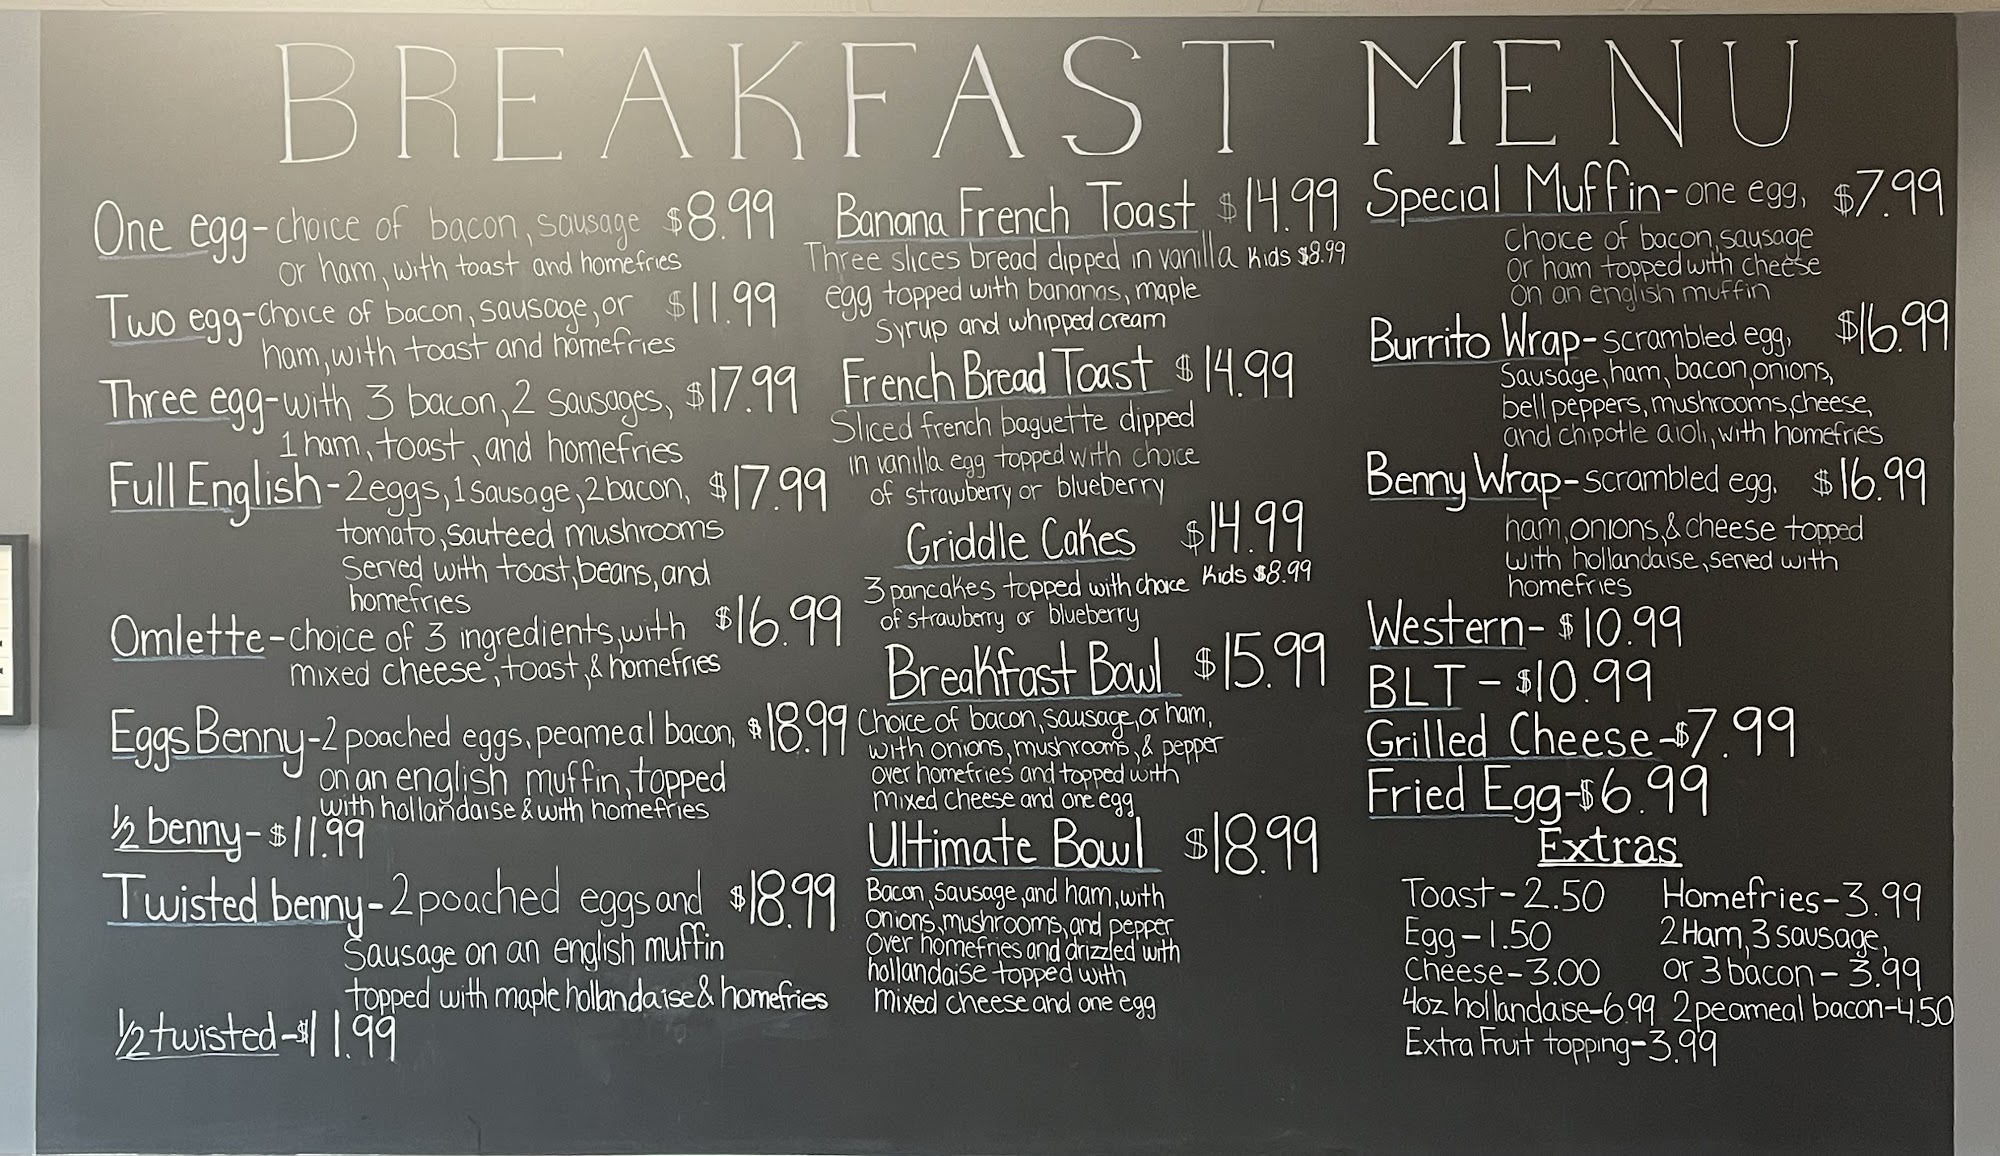 BREAKFAST MENU
One egg-choice of bacon, sausage $8.99
or ham, with toast and homefries
Two egg-choice of bacon, sausage, or $11.99
ham, with toast and homefries
Three egg-with 3 bacon, 2 sausages, $17.99
1 ham, toast, and homefries
Full English-2 eggs, 1 sausage, 2 bacon, $17.99
tomato, sauteed mushrooms
Served with toast, beans, and
homefries
Omlette-choice of 3 ingredients, with $16.99
mixed cheese, toast, & homefries
Eggs Benny-2 poached eggs, peameal bacon, $18.99
on an english muffin, topped
with hollandaise & with homefries
1/2 benny-$11.99
Twisted benny-2 poached eggs and $18.99
Sausage on an english muffin
topped with maple hollandaise & homefries
1/2 twisted-$11.99
Banana French Toast $14.99
Three slices bread dipped in vanilla Kids $8.99
egg topped with bananas, maple
Syrup and whipped cream
French Bread Toast $14.99
Sliced french baguette dipped
in vanilla egg topped with choice
of strawberry or blueberry
Griddle Cakes $14.99
3 pancakes topped with choice Kids $8.99
of strawberry or blueberry
Breakfast Bowl $15.99
Choice of bacon, sausage, or ham,
with onions, mushrooms, & pepper
over homefries and topped with
mixed cheese and one egg
Ultimate Bowl $18.99
Bacon, sausage, and ham, with
onions, mushrooms, and pepper
over homefries and drizzled with
hollandaise topped with
mixed cheese and one egg
Special Muffin-one egg, $7.99
choice of bacon, sausage
or ham topped with cheese
on an english muffin
Burrito Wrap-scrambled egg, $16.99
Sausage, ham, bacon, onions,
bell peppers, mushrooms, cheese,
and chipotle aioli, with homefries
Benny Wrap-scrambled egg, $16.99
ham, onions, & cheese topped
with hollandaise, served with
homefries
Western-$10.99
BLT-$10.99
Grilled Cheese-$7.99
Fried Egg-$6.99
Extras
Toast-2.50 Homefries-3.99
Egg-1.50 2 Ham, 3 sausage,
Cheese-3.00 or 3 bacon-3.99
4oz hollandaise-6.99 2 peameal bacon-4.50
Extra Fruit topping-3.99